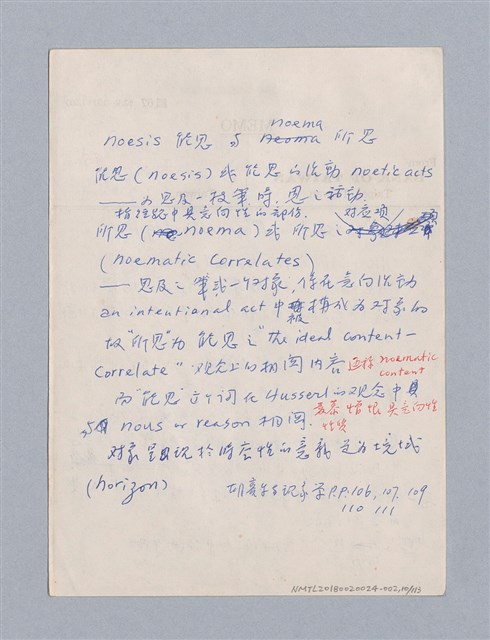 noema
noesis 能思 与 neoma 所思
能思(noesis)或能思的活動 noetic acts
——如思及一枝筆時,思之活動
指經驗中具意向性的部份. 对应项
所思(noema)或所思之
(noematic correlates)
——思及之筆或一切対象,存在意向活动
an intentional act 中被構成为对象的
故"所思"为能思之"the ideal content-
Correlate"观念上的相関内容 亦称 noematic
content
而"能思"這个词在 Husserl 的观念中具
与 nous or reason 相関. 羡慕 憎恨 具意向性
性質
对象呈現於時空性的意識是为境域
(horizon) 胡賽尔与現象学 P.P.106, 107, 109
110 111
NMTL20180020024-002,10/113